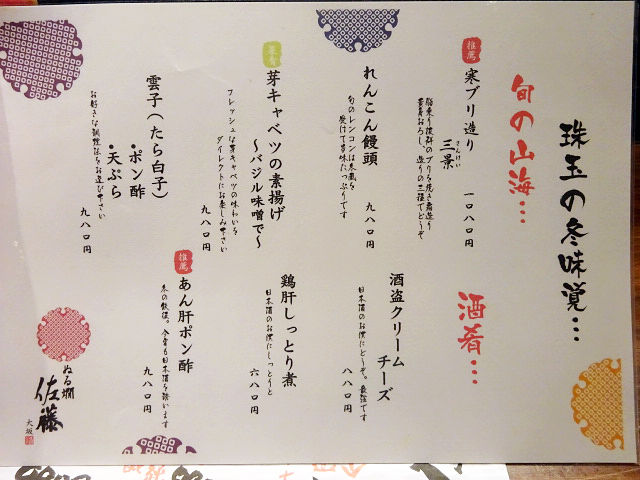 珠玉の冬味覚…
旬の山海…
推薦
寒ブリ造り
三景
さんけい
一〇八〇円
れんこん饅頭
旬のレンコンは冬風を
受けて甘味たっぷりです
九八〇円
菜肴
芽キャベツの素揚げ
〜バジル味噌で〜
フレッシュな芽キャベツの味わいを
ダイレクトにお楽しみ下さい
九八〇円
雲子(たら白子)
・ポン酢
・天ぷら
お好きな調理法をお選び下さい
九八〇円
酒肴…
酒盗クリーム
チーズ
日本酒のお供にどうぞ。最強です
八八〇円
鶏肝しっとり煮
日本酒のお供にしっとりと
六八〇円
推薦
あん肝ポン酢
冬の散漫。今宵も日本酒を誘います
九八〇円
ぬる燗
佐藤
大坂